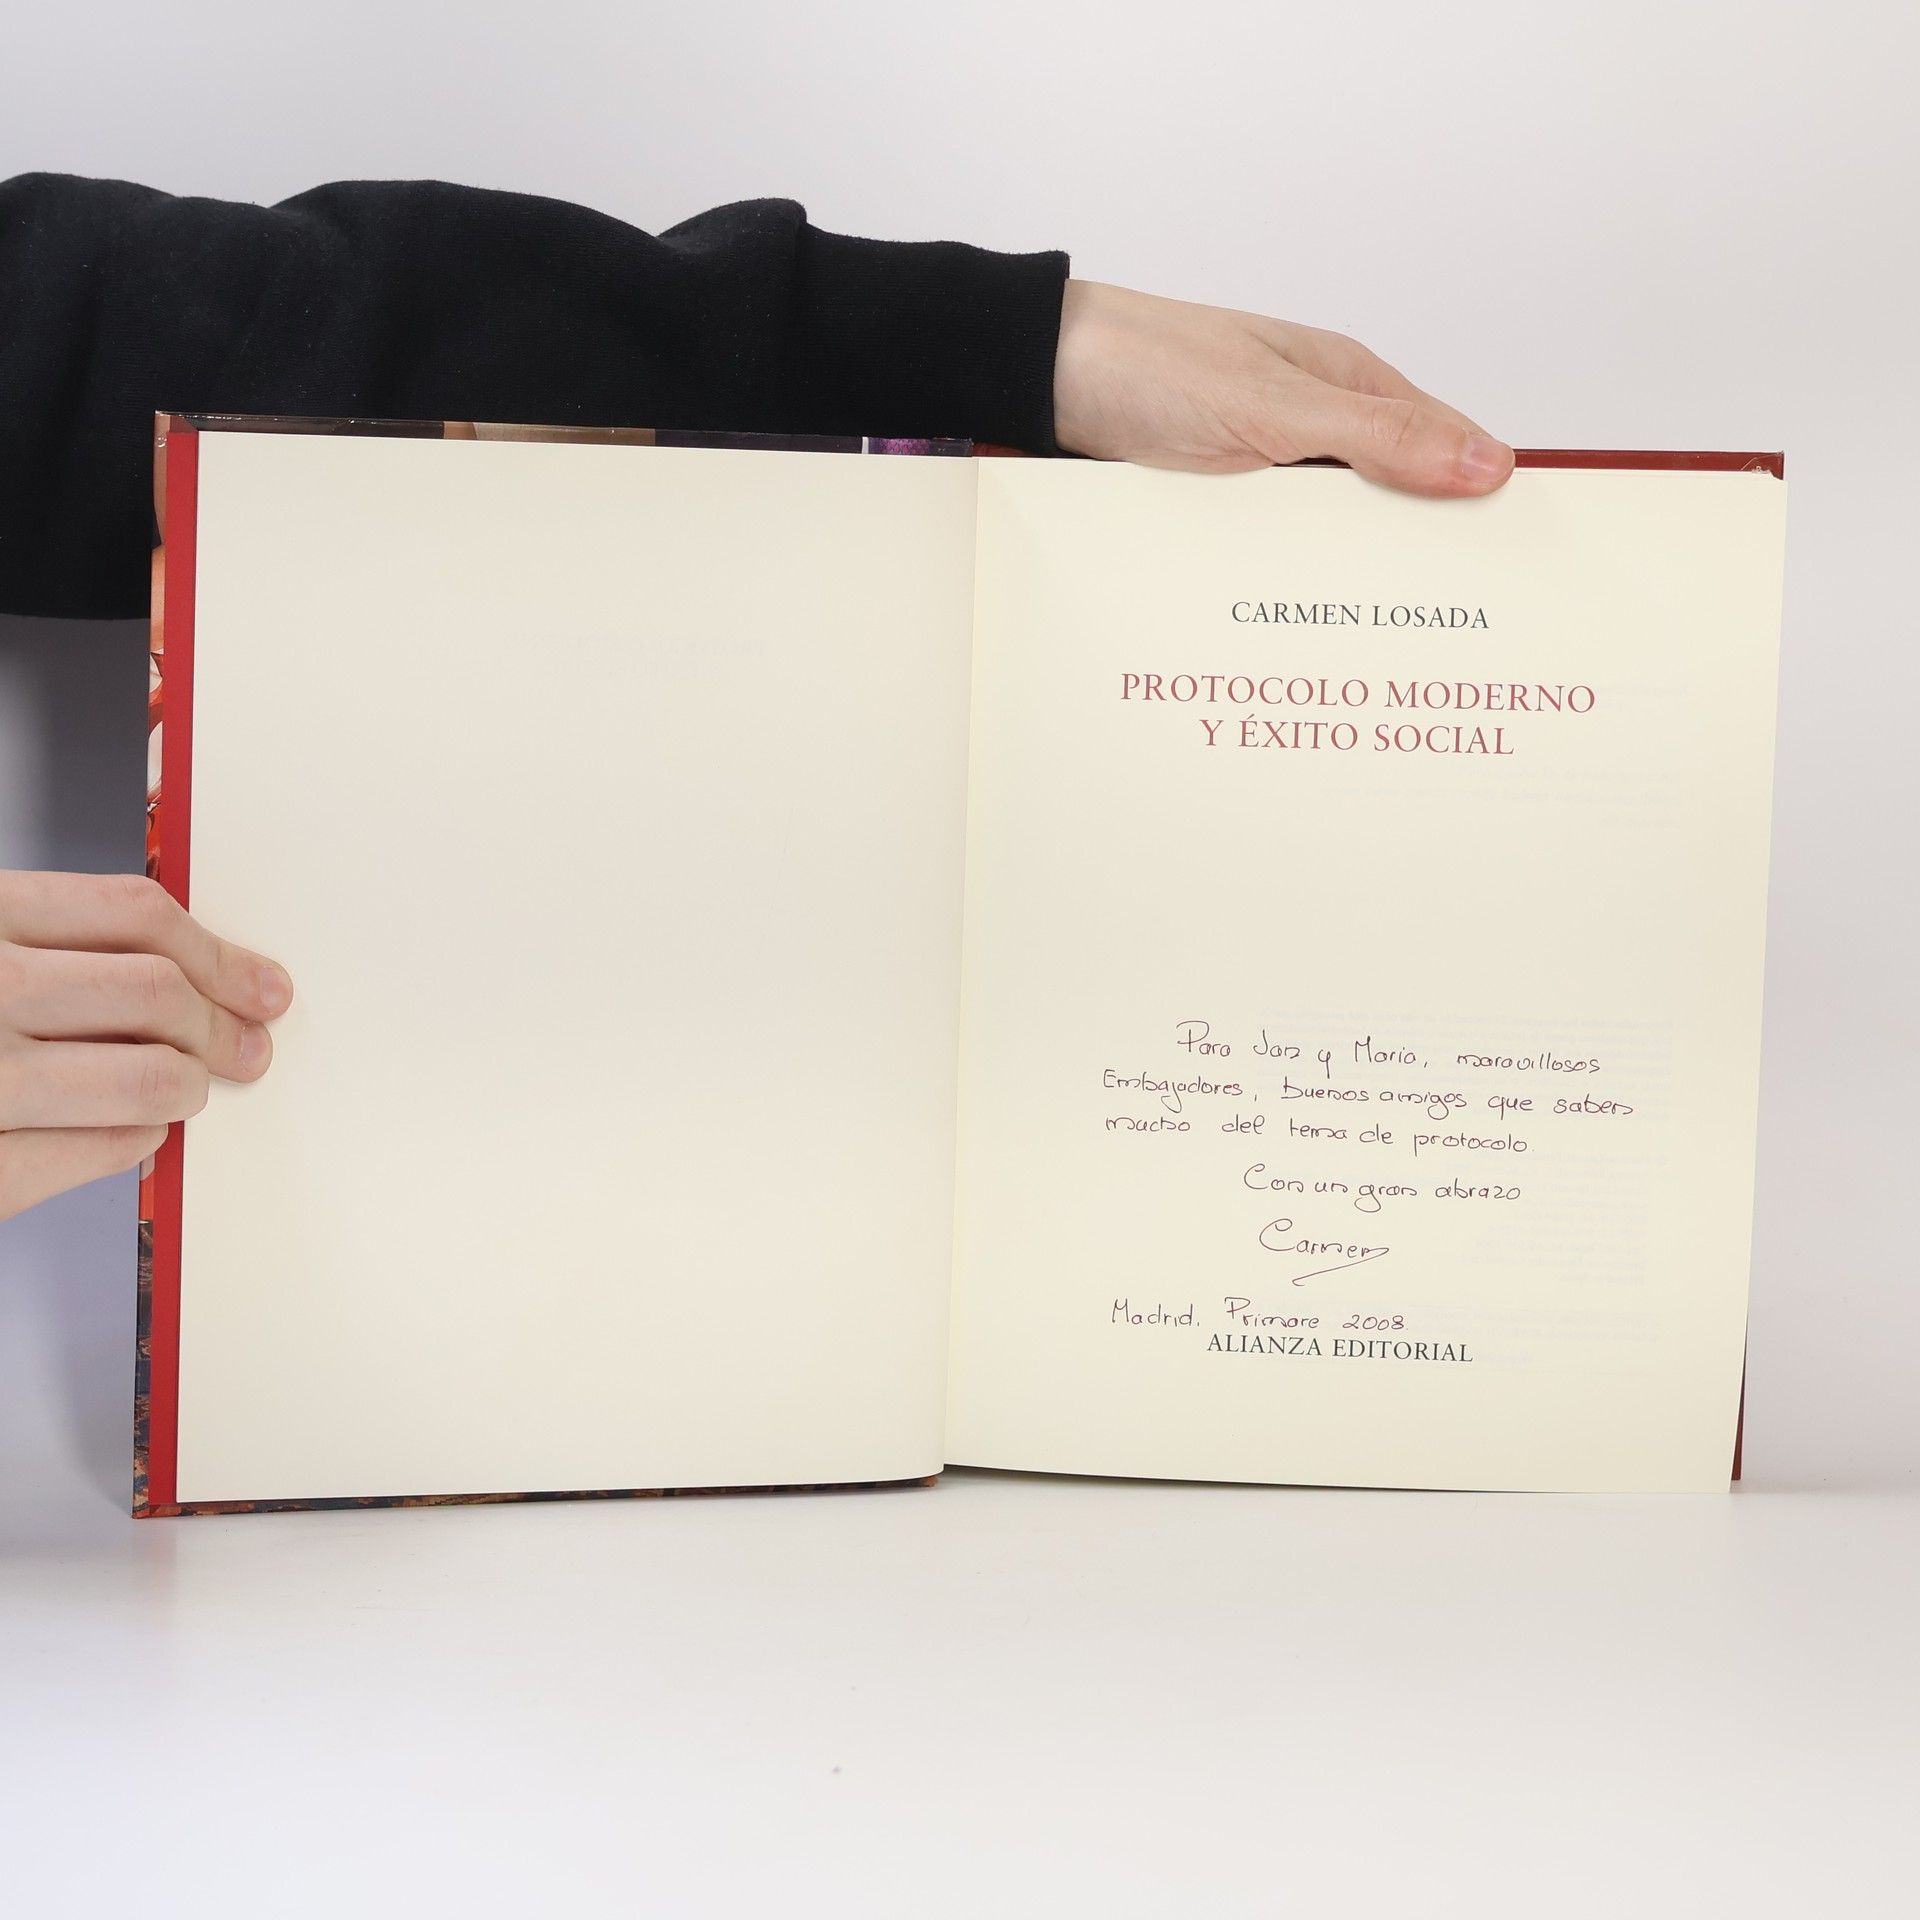 CARMEN LOSADA
PROTOCOLO MODERNO
Y ÉXITO SOCIAL
Para Jan y Maria, maravillosos
Embajadores, buenos amigos que saben
mucho del tema de protocolo.
Con un gran abrazo
Carmen
Madrid. Primare 2008.
ALIANZA EDITORIAL